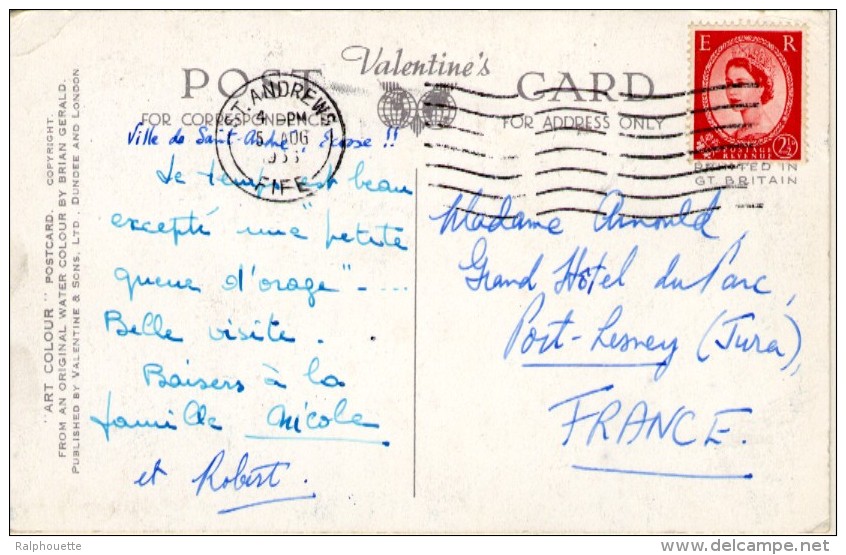 POST Valentine's CARD
FOR CORRESPONDENCE
FOR ADDRESS ONLY
ST. ANDREWS
4 - PM
5 AUG
FIFE
E R
2½
POSTAGE
REVENUE
PRINTED IN
GT. BRITAIN
Ville de Saint-André, Ecosse !!
Le temps est beau
excepté une "petite
queue d'orage" - ....
Belle visite.
Baisers à la
famille Nicole
et Robert.
Madame Arnould,
Grand Hôtel du Parc,
Port-Lesney (Jura),
FRANCE.
"ART COLOUR" POSTCARD. COPYRIGHT.
FROM AN ORIGINAL WATER COLOUR BY BRIAN GERALD.
PUBLISHED BY VALENTINE & SONS, LTD., DUNDEE AND LONDON
Ralphouette
www.delcampe.net